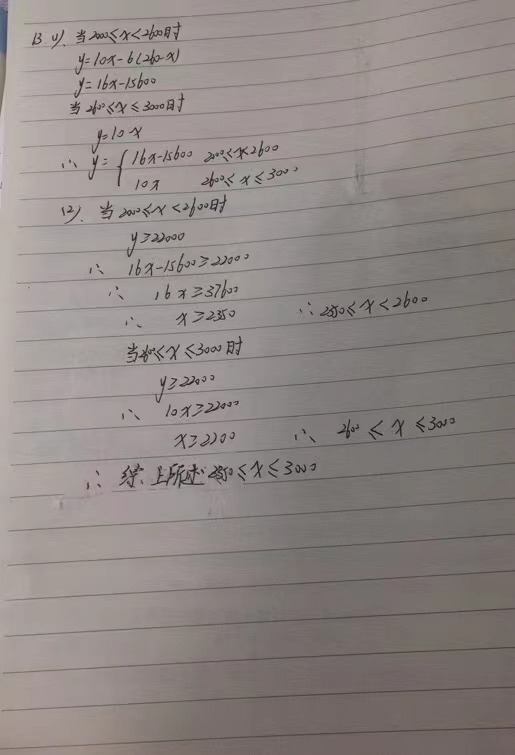 13 (1). 当2000≤x<2600时
y=10x-6(260-x)
y=16x-15600
当2600≤x≤3000时
y=10x
∴ y={ 16x-15600 2000≤x<2600
10x 2600≤x≤3000
(2). 当2000≤x<2600时
y≥22000
∴ 16x-15600≥22000
∴ 16x≥37600
∴ x≥2350 ∴2350≤x<2600
当2600≤x≤3000时
y≥22000
∴ 10x≥22000
x≥2200 ∴ 2600≤x≤3000
∴ 综上所述2350≤x≤3000